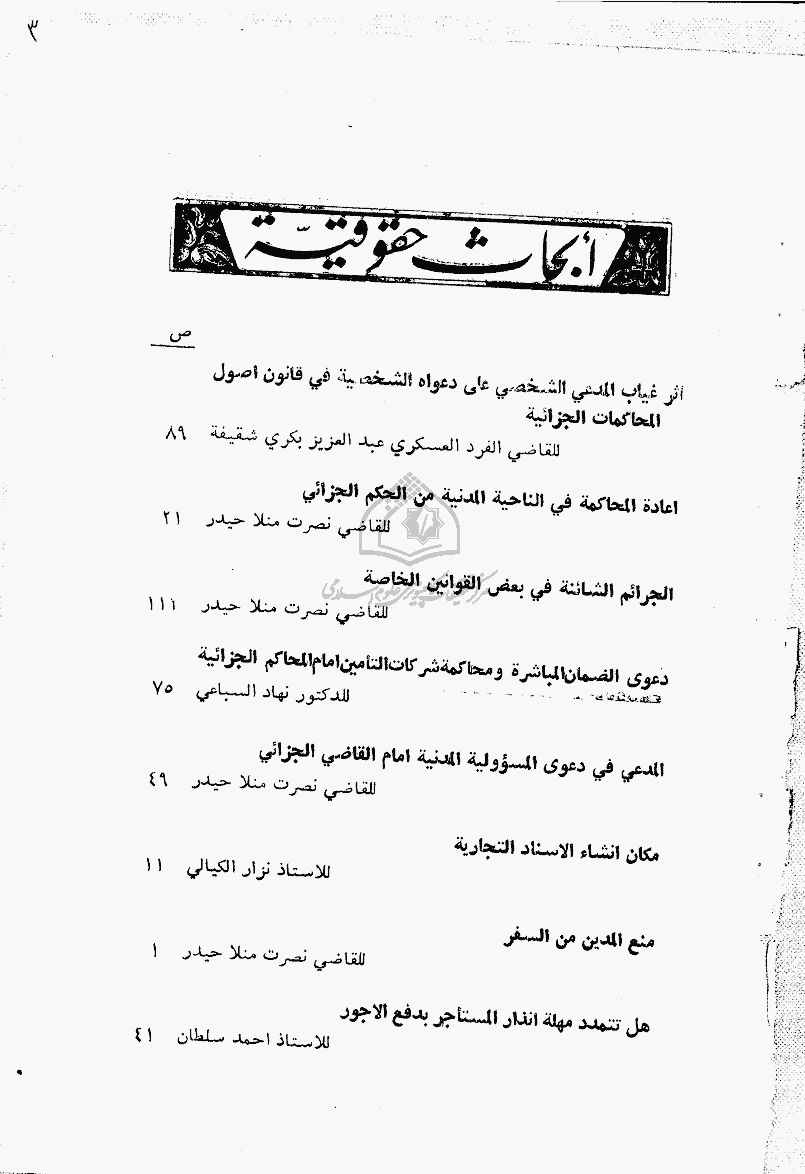 ٣
أبحاث حقوقيّة
ص
أثر غياب المدعي الشخصي على دعواه الشخصية في قانون اصول
المحاكمات الجزائية
للقاضي الفرد العسكري عبد العزيز بكري شقيفة ٨٩
اعادة المحاكمة في الناحية المدنية من الحكم الجزائي
للقاضي نصرت منلا حيدر ٢١
الجرائم الشائنة في بعض القوانين الخاصة
للقاضي نصرت منلا حيدر ١١١
دعوى الضمان المباشرة ومحاكمة شركات التأمين امام المحاكم الجزائية
للدكتور نهاد السباعي ٧٥
المدعي في دعوى المسؤولية المدنية امام القاضي الجزائي
للقاضي نصرت منلا حيدر ٤٩
مكان انشاء الاسناد التجارية
للاستاذ نزار الكيالي ١١
منع المدين من السفر
للقاضي نصرت منلا حيدر ١
هل تتمدد مهلة انذار المستأجر بدفع الاجور
للاستاذ احمد سلطان ٤١